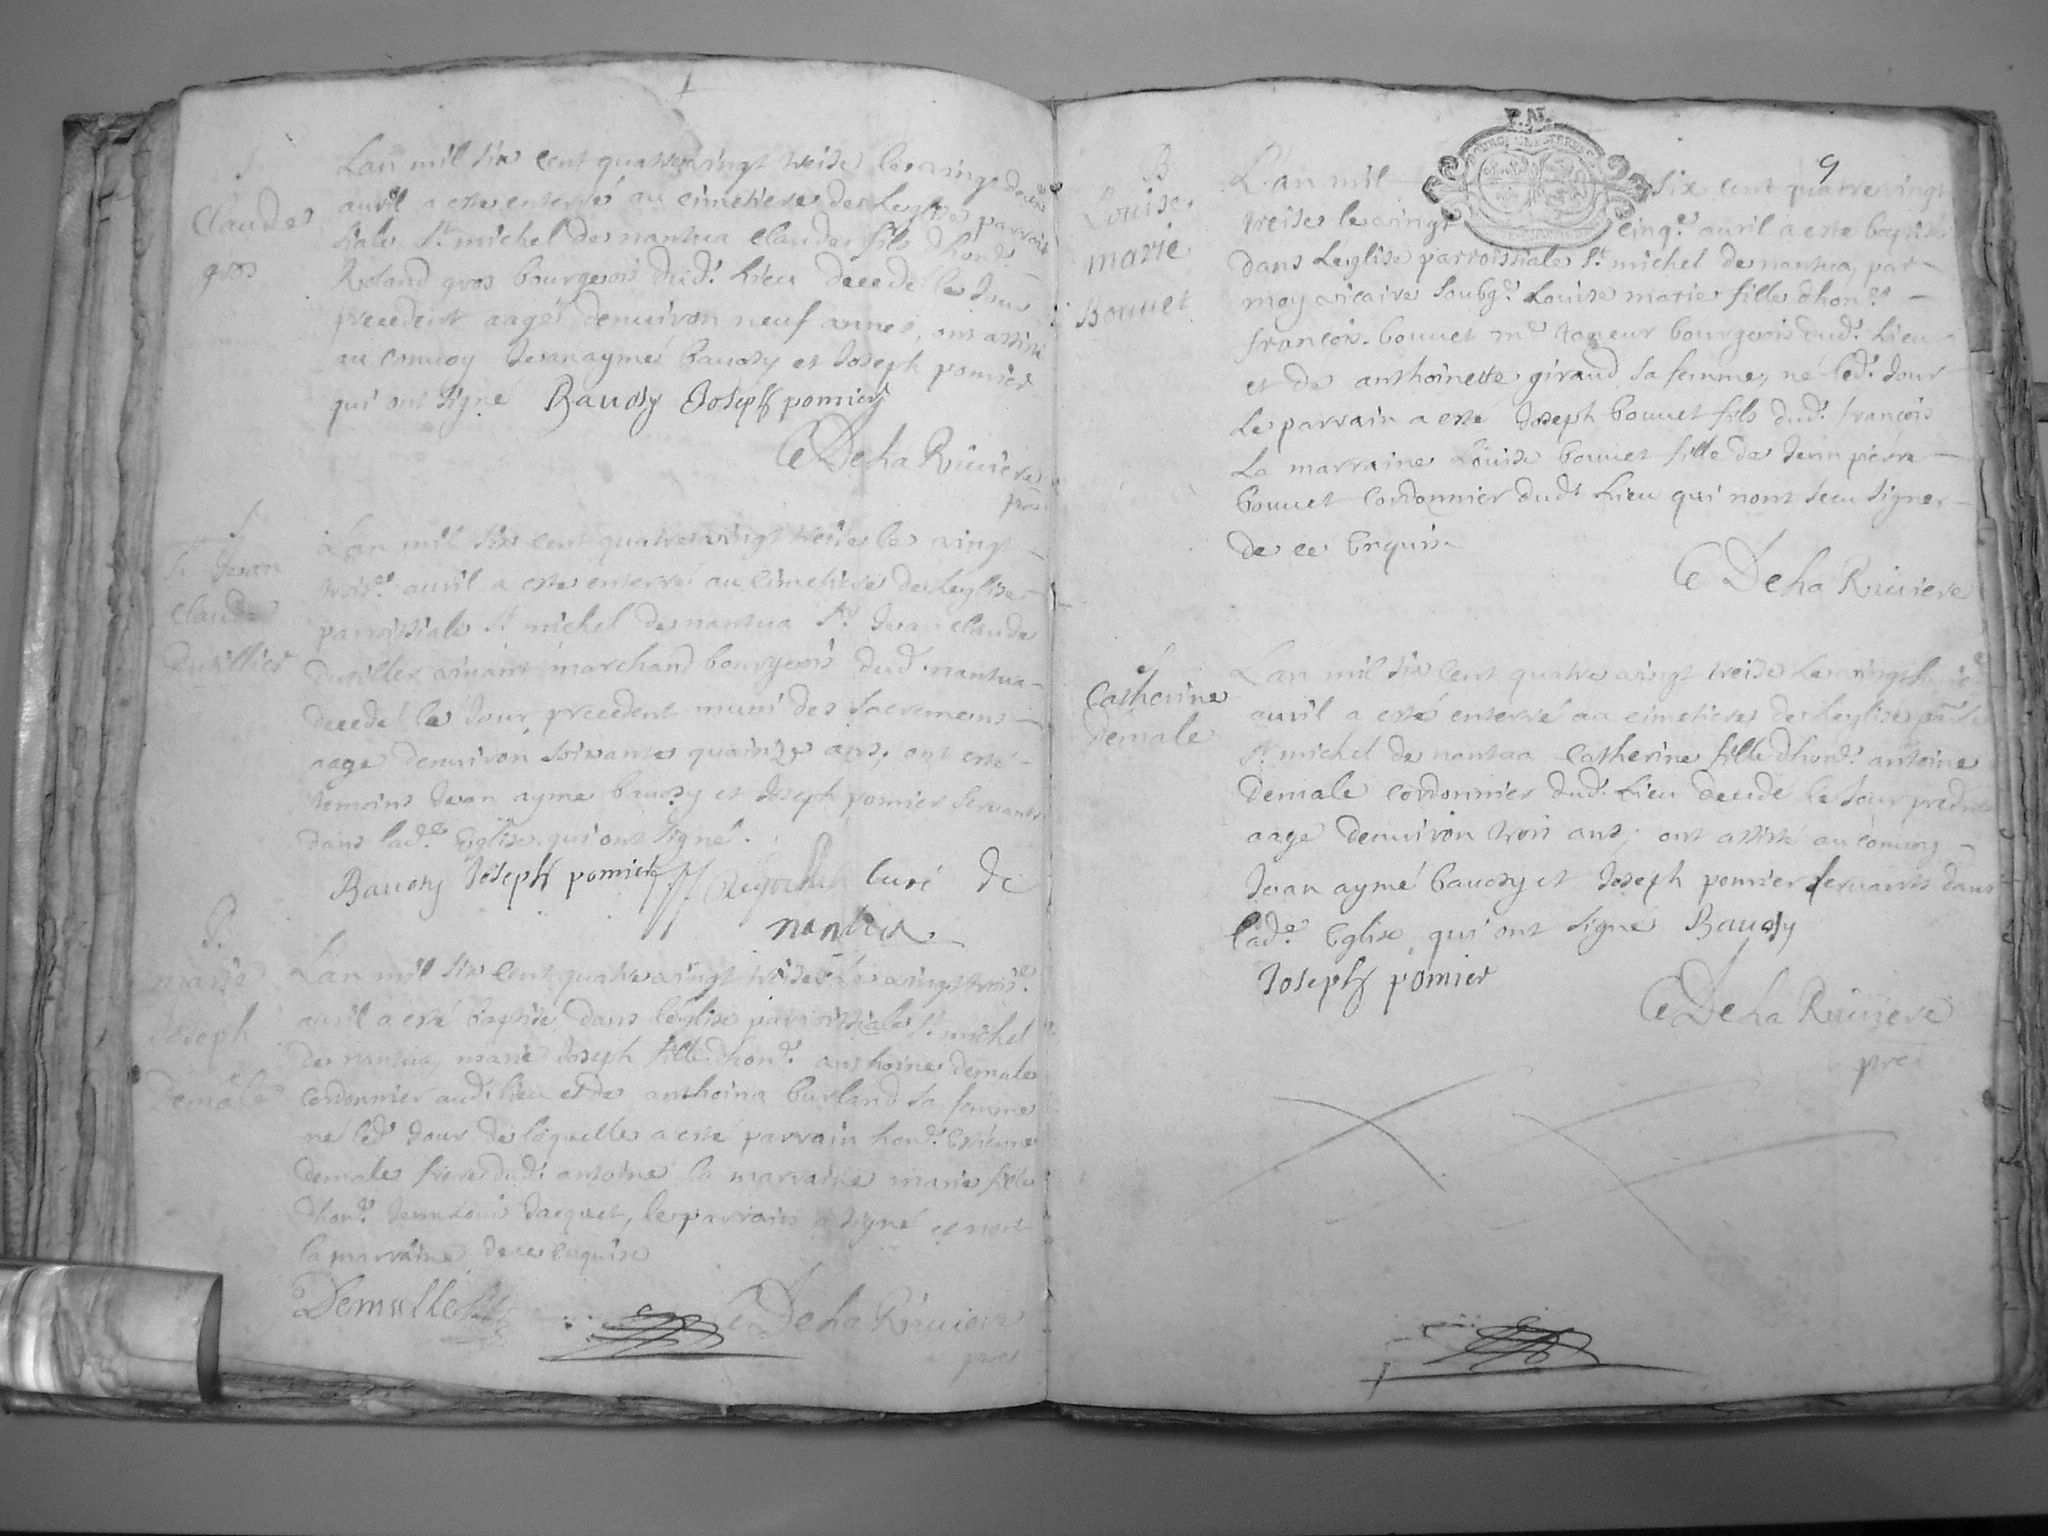 Lan mil six cent quatrevingt treise le vingt deux
avril a este enterré au cimetiere de Leglise parrois
siale St. michel de nantua Claude fils dhond.
Roland gros bourgeois dud. Lieu decedé le Jour
precedent aagé denuiron neuf annes, ont assisté
au conuoy Jean aymé bauozy et Joseph pomier
qui ont signé Bauozy Joseph pomier
DeLaRiuiere
pre
Claude
gros
Lan mil six cent quatrevingt treise le vingt
trois.e auril a este enterré au cimetiere de Leglise
parroissiale St. michel de nantua Sr. Jean claude
viuant marchand bourgeois dud. nantua
decedé le Jour precedent muni des sacremens
aage denuiron soixante quainze ans, ont esté
temoins Jean ayme bauozy et Joseph pomier seruants
dans lad.e Eglise qui ont signé.
Bauozy Joseph pomier curé de
nantua
Sr Jean
claude
Lan mil six cent quatre vingt treise Le vingt trois.e
auril a esté baptisé dans leglise parroissiale St. michel
de nantua, marie Joseph fille dhond. anthoine demale
cordonnier aud. lieu et de anthoina burland sa femme
né led. Jour de laquelle a esté parrain hond. Estienne
demale frere dud. antoine la marraine marie fille
dhond. Jean Louis Jacquet, le parrain a signé et non
la marraine de ce enquise
Demalle DeLaRiuiere
pre
B.
marie
Joseph
demale
9
B.
Louise
marie
Bouuet
L'an mil six cent quatre vingt
treise le vingt cinq.e auril a este baptisé
dans Leglise parroissiale St. michel de nantua, par
moy vicaire soubg.é Louise marie fille dhon.e
francois bouuet m.e bourgeois dud. Lieu
et de anthoinette giraud sa femme, né led. Jour
Le parrain a este Joseph bouuet fils dud. francois
La marraine Louise bouuet fille de Jean pierre
bouuet cordonnier dud. Lieu qui nont sceu signer
de ce Enquis
DeLaRiuiere
Catherine
Demale
Lan mil six cent quatre vingt treise Le vingt
auril a esté enterré au cimetiere de Leglise
St. michel de nantua Catherine fille dhond. antoine
Demale cordonnier dud. Lieu decedé le Jour
aage denuiron trois ans, ont assisté au conuoy
Jean aymé bauozy et Joseph pomier seruants dans
lad.e Eglise, qui ont signé Bauozy
Joseph pomier
DeLaRiuiere
pre